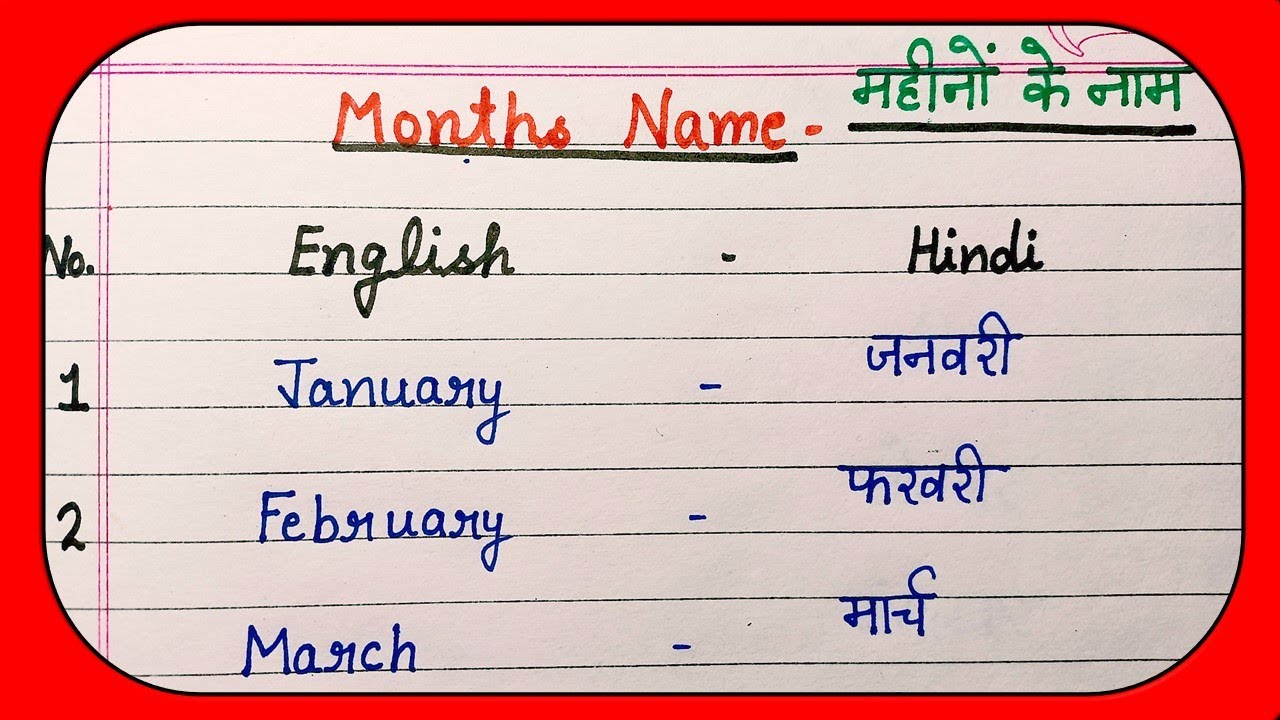 Months Name - महीनों के नाम
No. English - Hindi
1 January - जनवरी
2 February - फरवरी
March - मार्च